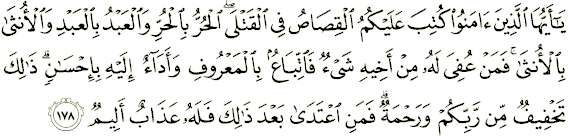 يَٰٓأَيُّهَا ٱلَّذِينَ ءَامَنُوا۟ كُتِبَ عَلَيْكُمُ ٱلْقِصَاصُ فِى ٱلْقَتْلَى ۖ ٱلْحُرُّ بِٱلْحُرِّ وَٱلْعَبْدُ بِٱلْعَبْدِ وَٱلْأُنثَىٰ
بِٱلْأُنثَىٰ ۚ فَمَنْ عُفِىَ لَهُۥ مِنْ أَخِيهِ شَىْءٌ فَٱتِّبَاعٌۢ بِٱلْمَعْرُوفِ وَأَدَآءٌ إِلَيْهِ بِإِحْسَٰنٍ ۗ ذَٰلِكَ
تَخْفِيفٌ مِّن رَّبِّكُمْ وَرَحْمَةٌ ۗ فَمَنِ ٱعْتَدَىٰ بَعْدَ ذَٰلِكَ فَلَهُۥ عَذَابٌ أَلِيمٌ ﴿١٧٨﴾